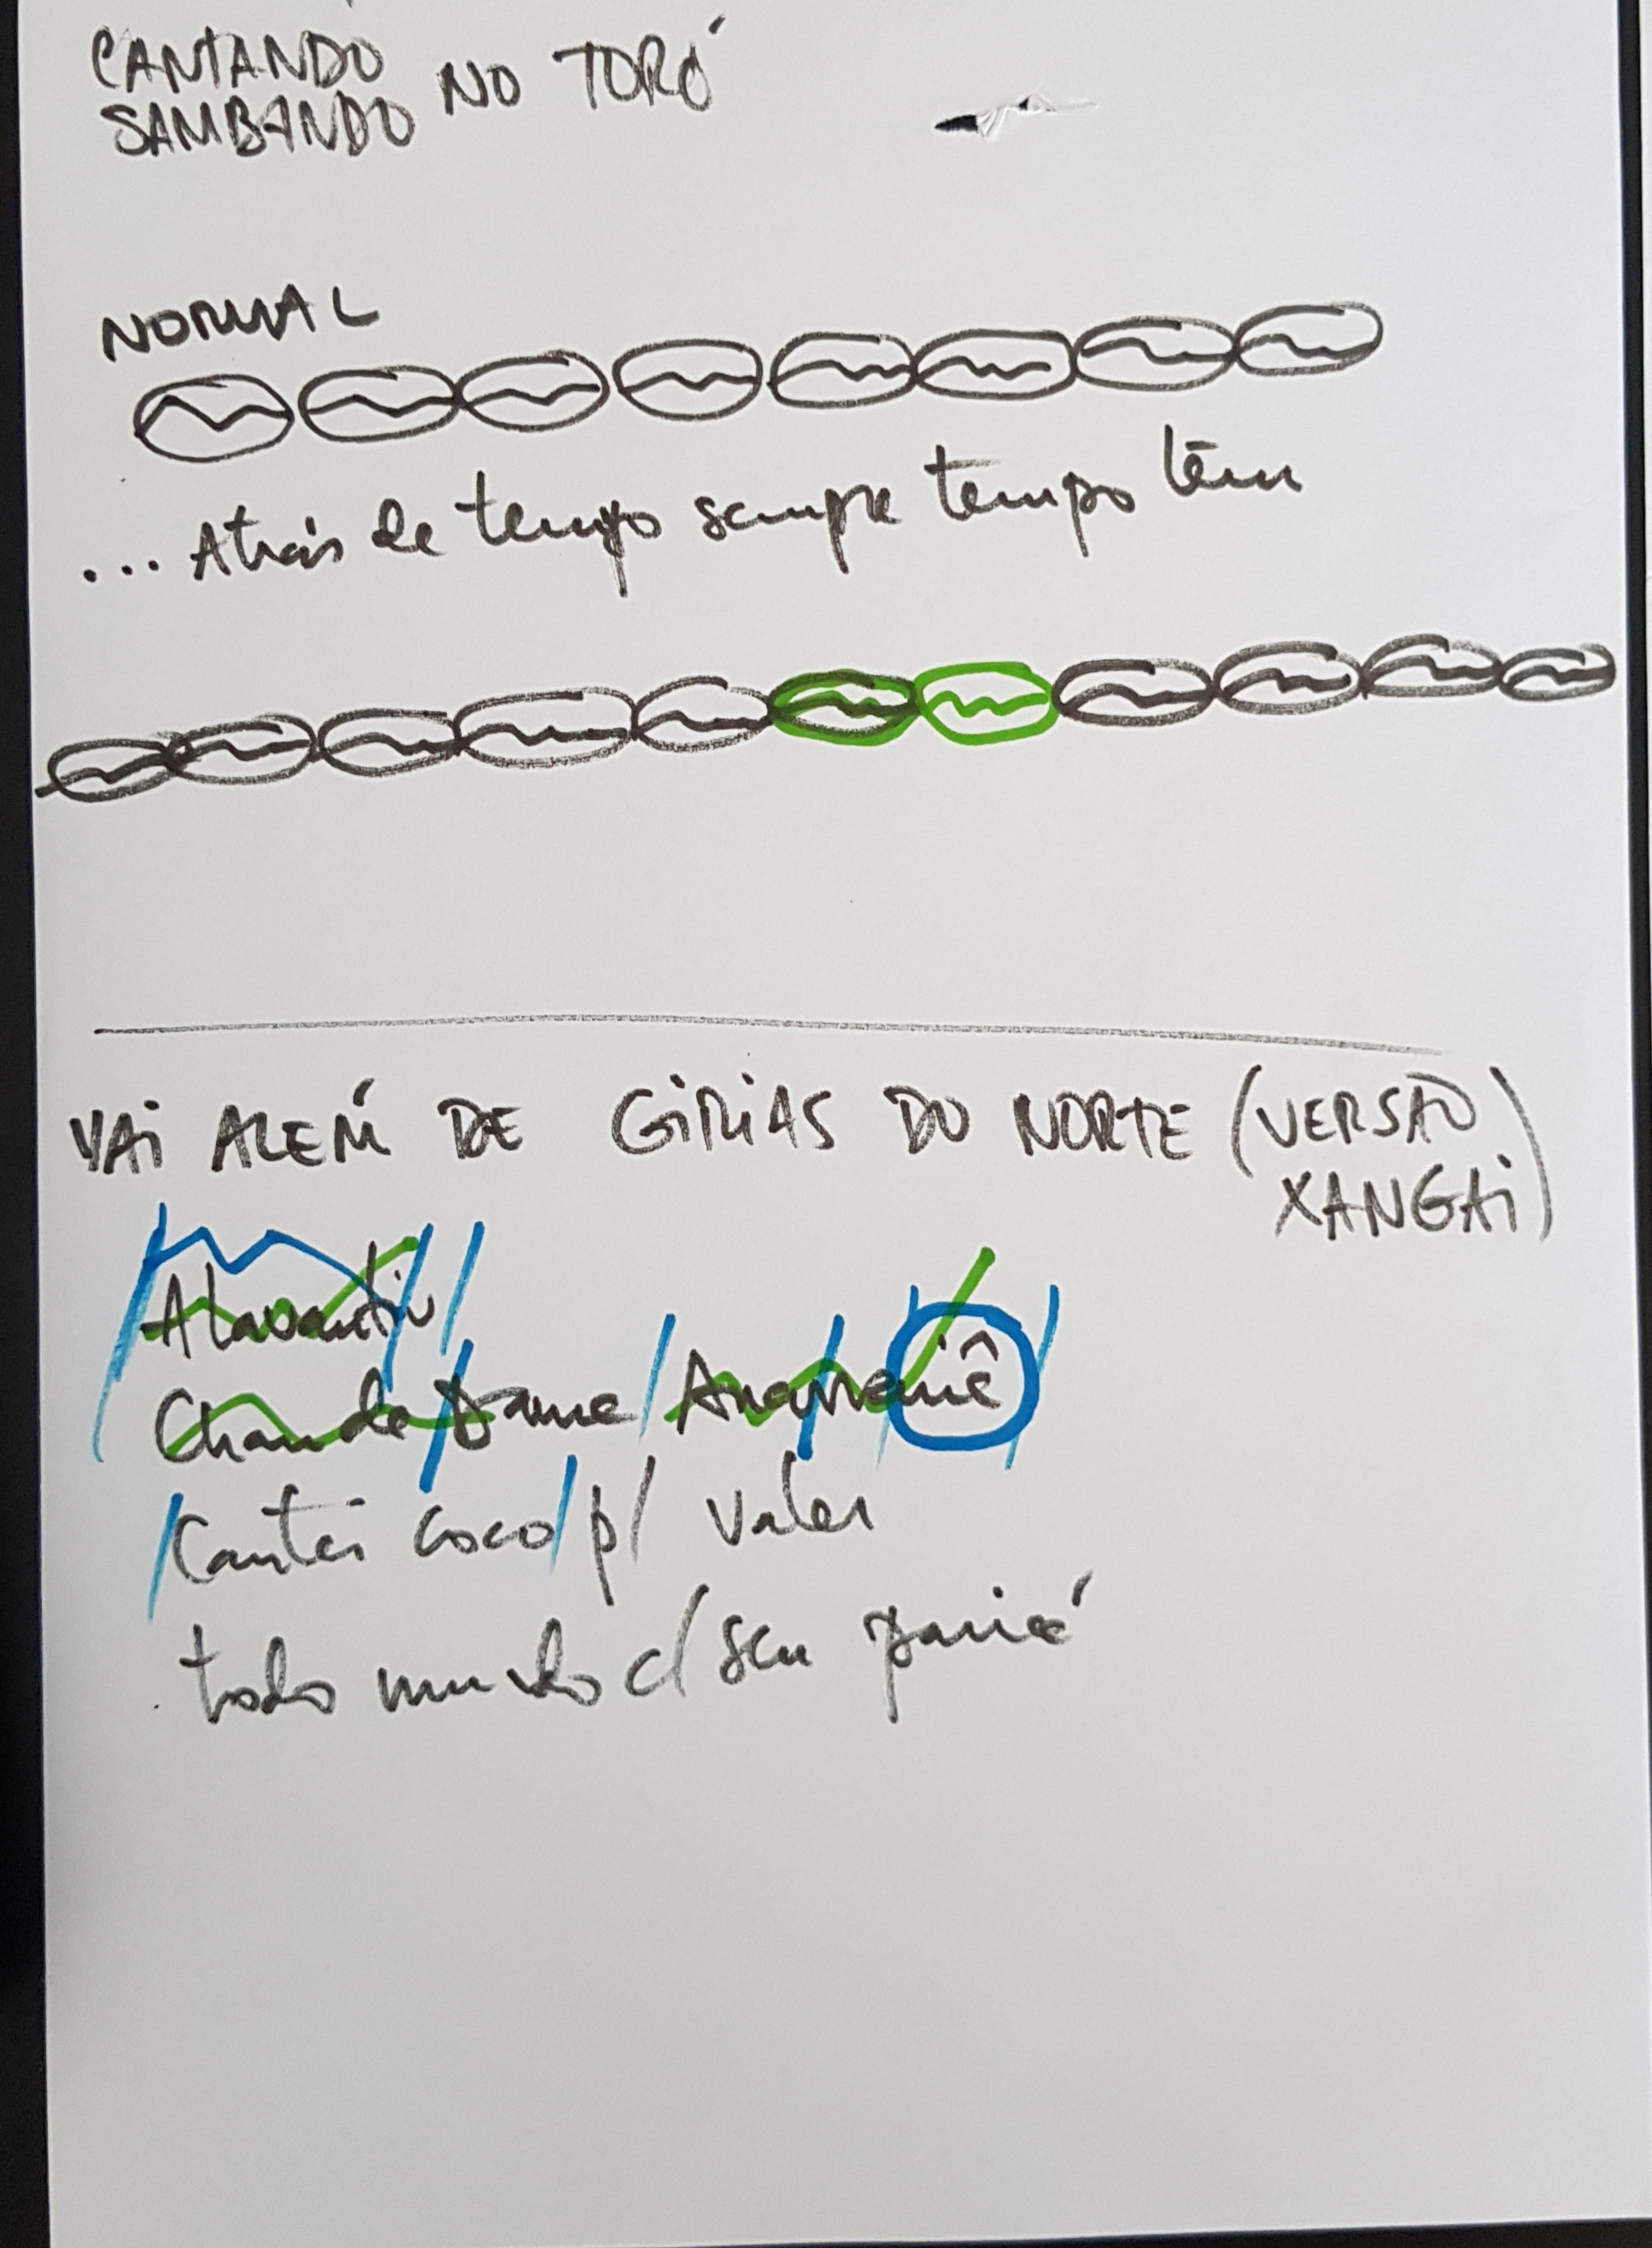 CANTANDO
SAMBANDO NO TORÓ
NORMAL
... Atrás de tempo sempre tempo têm
VAI ALÉM DE GÍRIAS DO NORTE (VERSÃO
XANGAI)
Alavantiu
Chande Dame / Anarriê
/ Cantei coco / p/ valer
todo mundo c/ seu